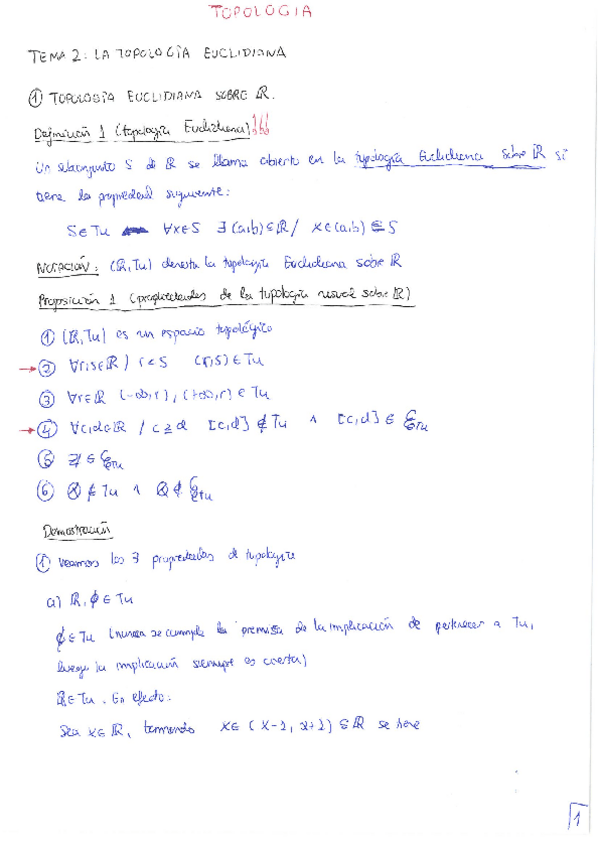 TOPOLOGIA
TEMA 2: LA TOPOLOGÍA EUCLIDIANA
① TOPOLOGÍA EUCLIDIANA SOBRE ℝ.
Definición 1 (topología Euclidiana)!!!
Un subconjunto S de ℝ se llama abierto en la topología Euclidiana sobre ℝ si
tiene la propiedad siguiente:
S∈Tu ∀x∈S ∃(a,b)⊆ℝ / x∈(a,b)⊆S
NOTACIÓN: (ℝ,Tu) denota la topología Euclidiana sobre ℝ
Proposición 1 (propiedades de la topología usual sobre ℝ)
① (ℝ,Tu) es un espacio topológico
→ ② ∀r,s∈ℝ / r<s (r,s)∈Tu
③ ∀r∈ℝ (-∞,r), (+∞,r)∈Tu
→ ④ ∀c,d∈ℝ / c≥d [c,d]∉Tu ∧ [c,d]∈ 𝒞Tu
⑤ ℤ∈𝒞Tu
⑥ ℚ∉Tu ∧ ℚ∉𝒞Tu
Demostración
① Veamos las 3 propiedades de topología
a) ℝ,∅∈Tu
∅∈Tu (nunca se cumple la premisa de la implicación de pertenecer a Tu,
luego la implicación siempre es cierta)
ℝ∈Tu. En efecto:
Sea x∈ℝ, tomando x∈(x-1, x+1)⊆ℝ se tiene
1